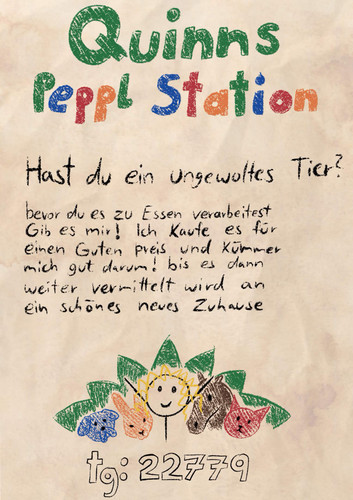 Quinns
Peppl Station
Hast du ein ungewoltes Tier?
bevor du es zu Essen verarbeitest
Gib es mir! Ich Kaufe es für
einen Guten preis und Kümmer
mich gut darum! bis es dann
weiter vermittelt wird an
ein schönes neues Zuhause
tg: 22779